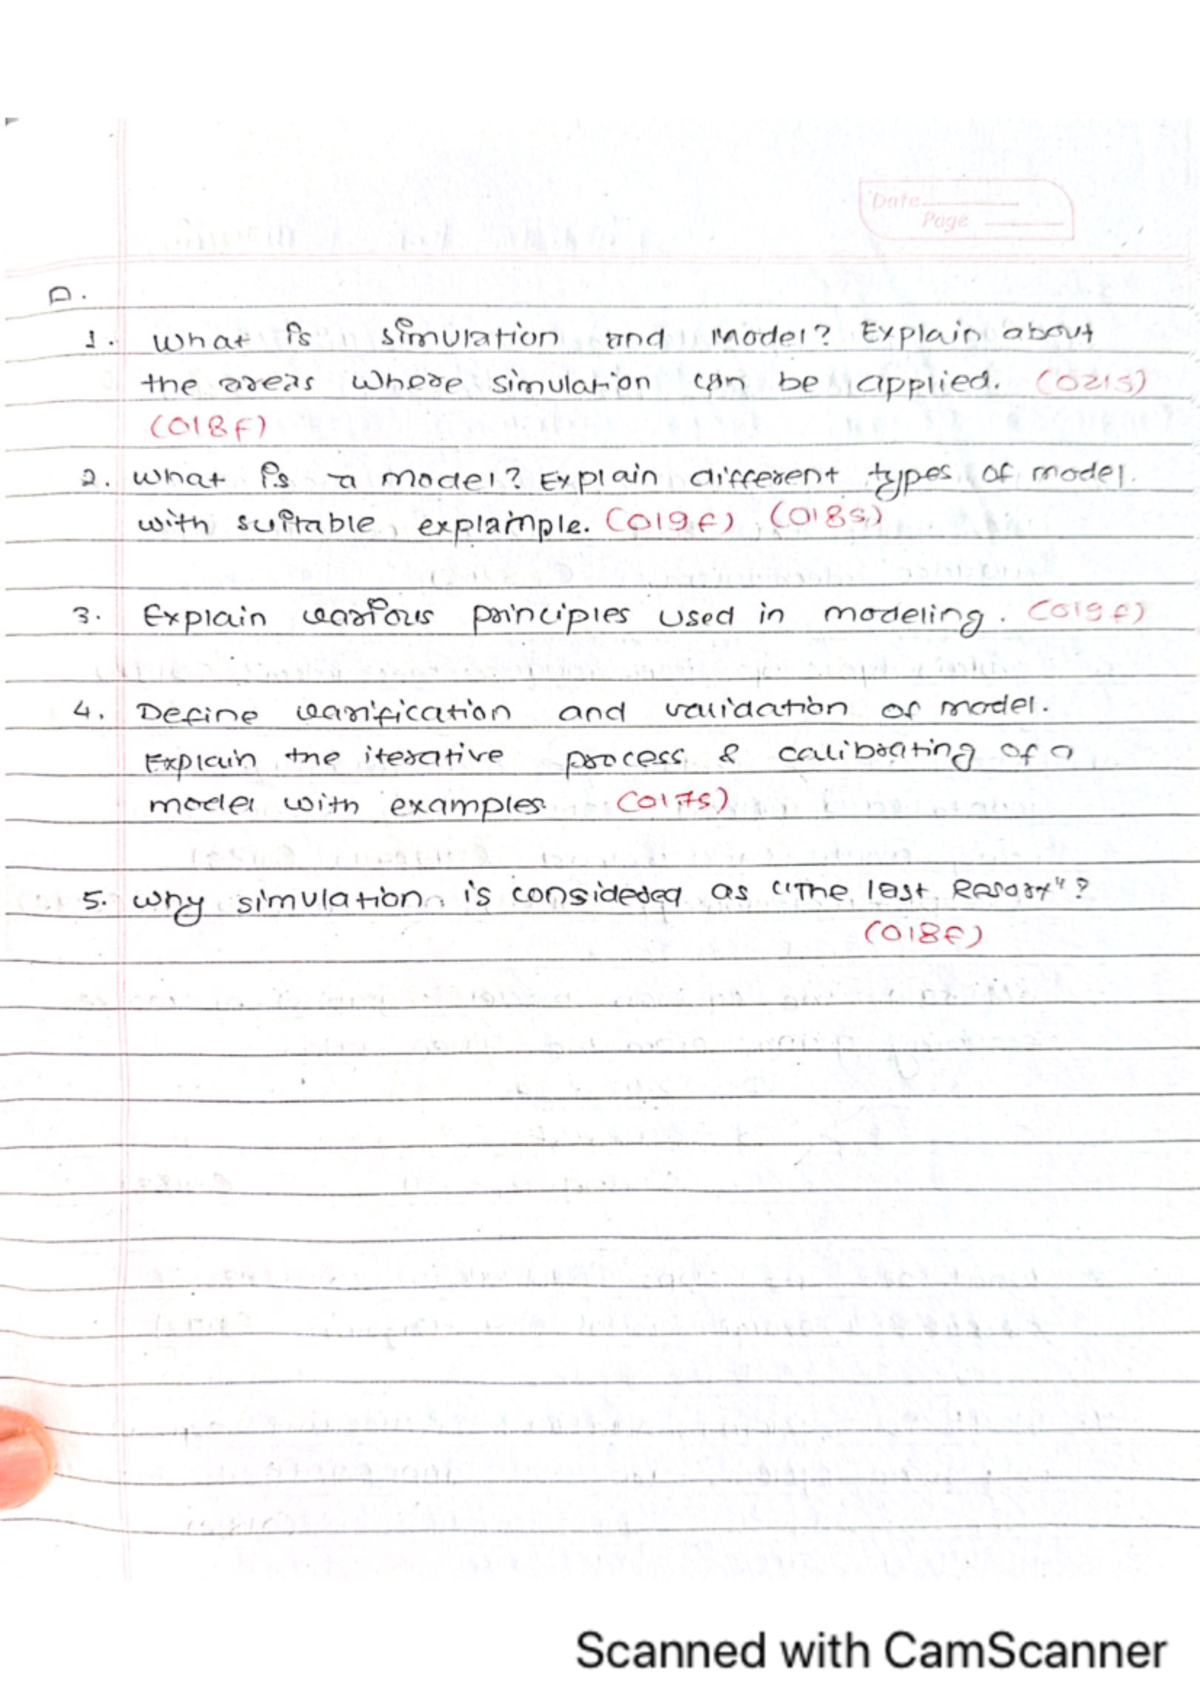 Date
Page
D.
1. What is simulation and Model? Explain about
the areas where simulation can be applied. (021S)
(018F)
2. What is a model? Explain different types of model.
with suitable explaimple. (019F) (018S)
3. Explain various principles used in modeling. (019F)
4. Define varification and validation of model.
Explain the iterative process & calibrating of a
model with examples. (017S)
5. Why simulation is considered as "The last Resort"?
(018F)
Scanned with CamScanner